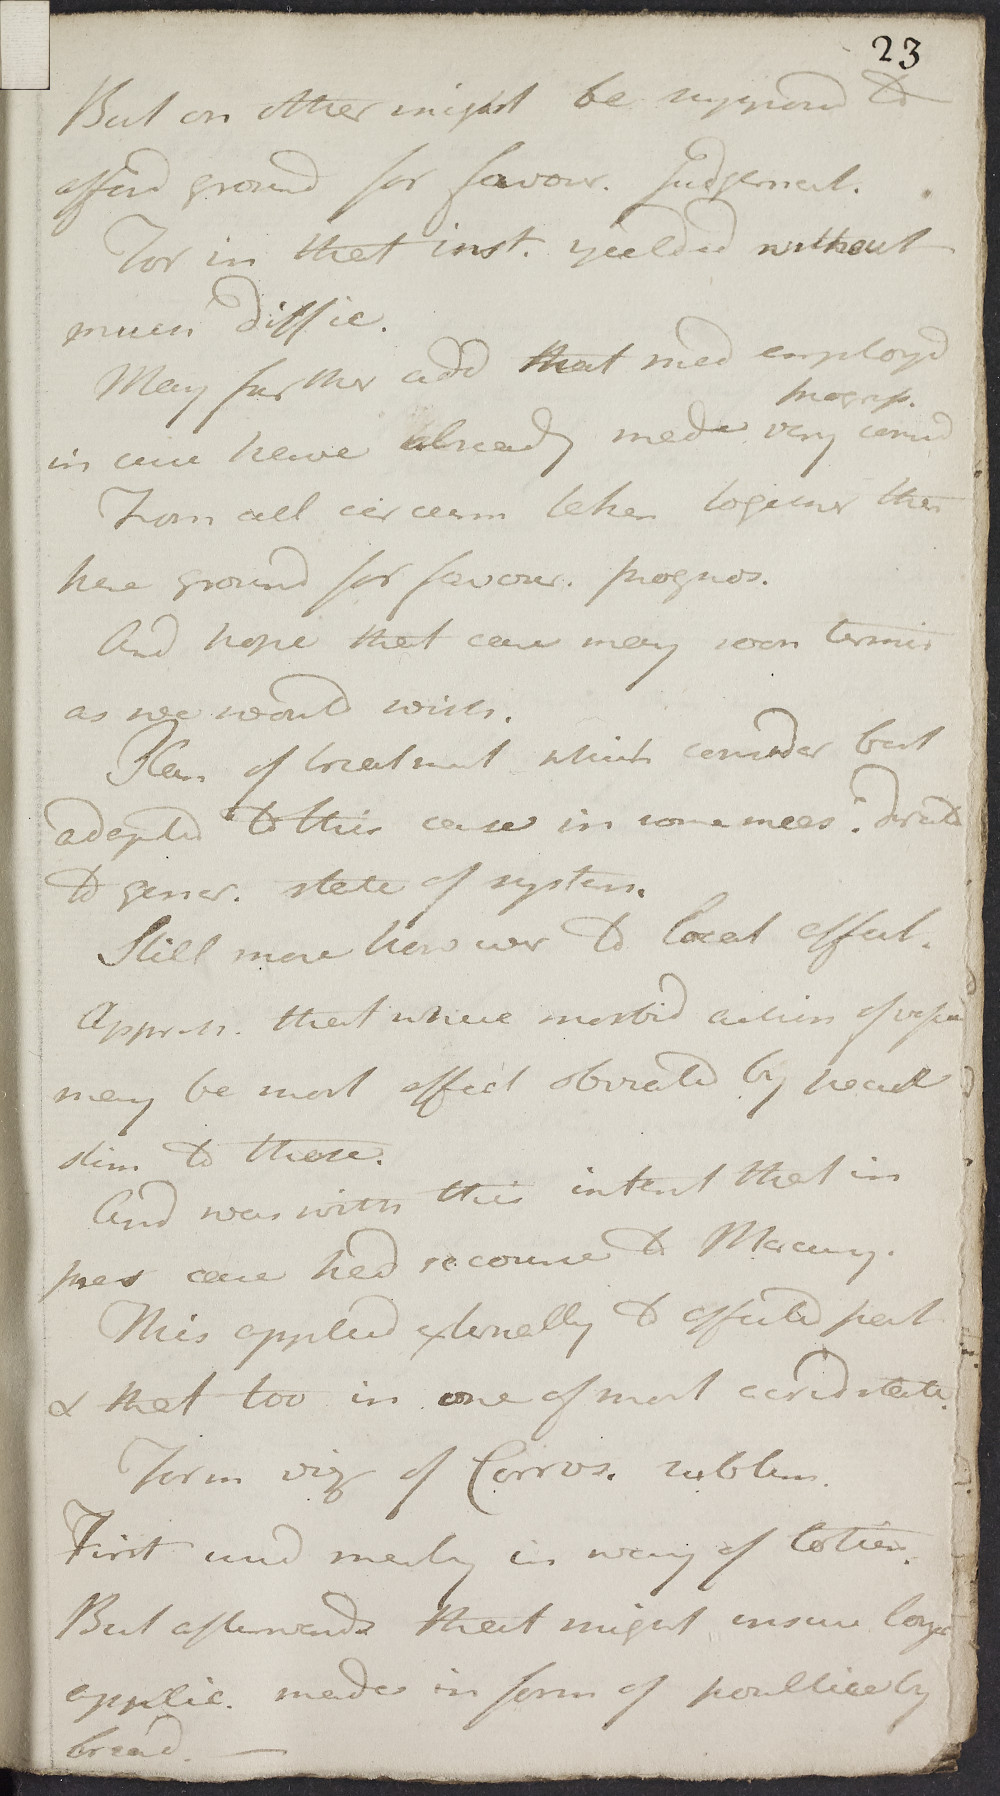 23
But on other might be suppond to
afford ground for favour. Judgement.
For in that inst. yielded without
much diffic.
May further add that med employd
progr.
in case have already made very consid
From all circum taken together then
have ground for favour. prognos.
And hope that case may soon termin
as we would wish.
Plan of treatment which consider best
adapted to this case in some meas. directd
to gener. state of system.
Still more however to local affect.
Appreh. that where morbid action of vessels
may be most effect obviated by
stim to these.
And was with this intent that in
pres case had recourse to Mercury.
This applied externally to affected part
& that too in one of most acrid state.
Form viz of Corros. sublim.
First used merely in way of lotion.
But afterwards that might insure longer
applic. made in form of poultice by
bread. —